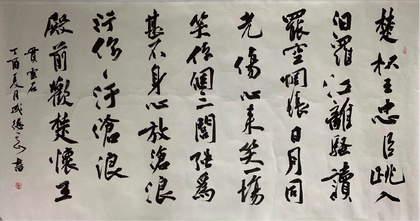 楚怀王忠臣跳入
汨羅江離騷讀
罷空惆悵日月同
光傷心来笑一場
笑你個三閭强為
甚不身心放滄浪
污你々污滄浪
殿前歡楚懷王
貫雲石
丁酉夏月 書